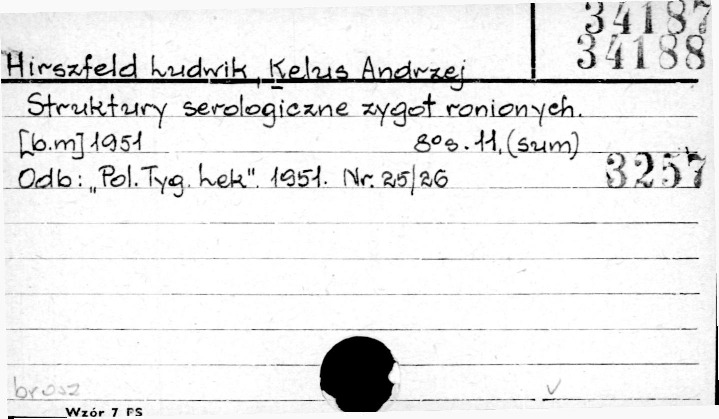 34187
34188
Hirszfeld Ludwik, Kelus Andrzej
Struktury serologiczne zygot ronionych.
[b.m] 1951 8°s. 11, (sum)
Odb: „Pol. Tyg. Lek". 1951. Nr. 25/26
3257
brosz v
Wzór 7 FS